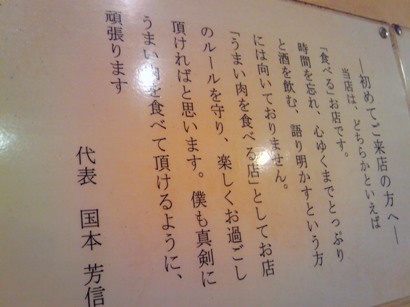 ―初めてご来店の方へ―
当店は、どちらかといえば
「食べる」お店です。
時間を忘れ、心ゆくまでとっぷり
と酒を飲む、語り明かすという方
には向いておりません。
「うまい肉を食べる店」としてお店
のルールを守り、楽しくお過ごし
頂ければと思います。僕も真剣に
うまい肉を食べて頂けるように、
頑張ります
代表 国本 芳信